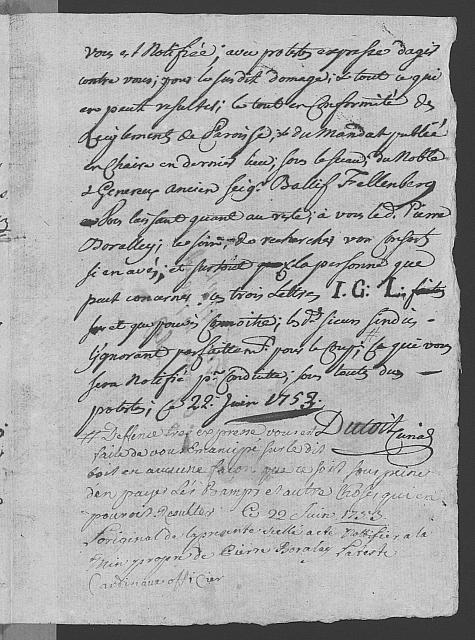 vous est Notifiée; avec proteste expresse d'agir
contre vous; pour le susdit domage; & tout ce qui
en peut resulter; le tout en Conformité des
Reiglements de Paroisse, & du Mandat publié
en Chaire en dernier lieu; sous le sceau; du Noble
& Genereux Ancien Seigr Ballif Fellenberg
Vous laissant quant au reste; à vous le dt Pierre
Boralley; le soin de rechercher vos Consorts
si en avés, et surtout la personne que
peut concerner les trois Lettres I. G: L.
et que pouvés Connoitre; les ds sieurs sindics
l'ignorant parfaittemt pour le Coup; Ce que vous
sera Notifié pr Conduitte; sous toutes dues
protestes; Ce 22. Juin 1753.
Dutoit
# Deffence tres expresse vous est
faite de vous emancipé sur le dit
boit en aucune facon que ce soit sous peine
den payer Les Domages et autre Choses qui en
pouroit Resulter Ce 22 Juin 1753
Loriginal de la presente sellé a ete Nottifier a la
Main propre de Pierre Boraley Lateste
Cardinaux officier